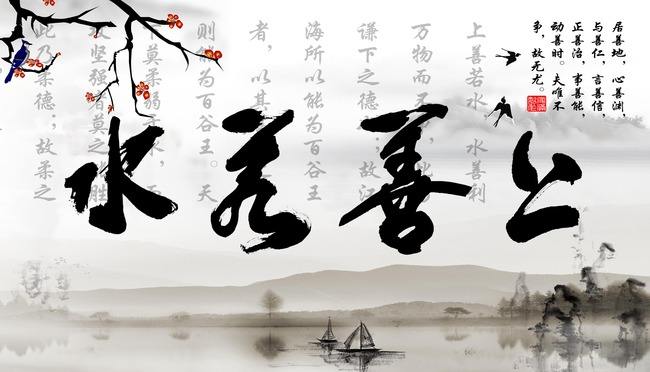 上善若水
居善地，心善渊，
与善仁，言善信，
正善治，事善能，
动善时。夫唯不
争，故无尤。
上善若水 水善利
万物而
谦下之德 故江
海所以能为百谷王
者，以其
则能为百谷王。天
下莫柔弱 水，
攻坚强者莫之 胜
此乃柔德；故柔之